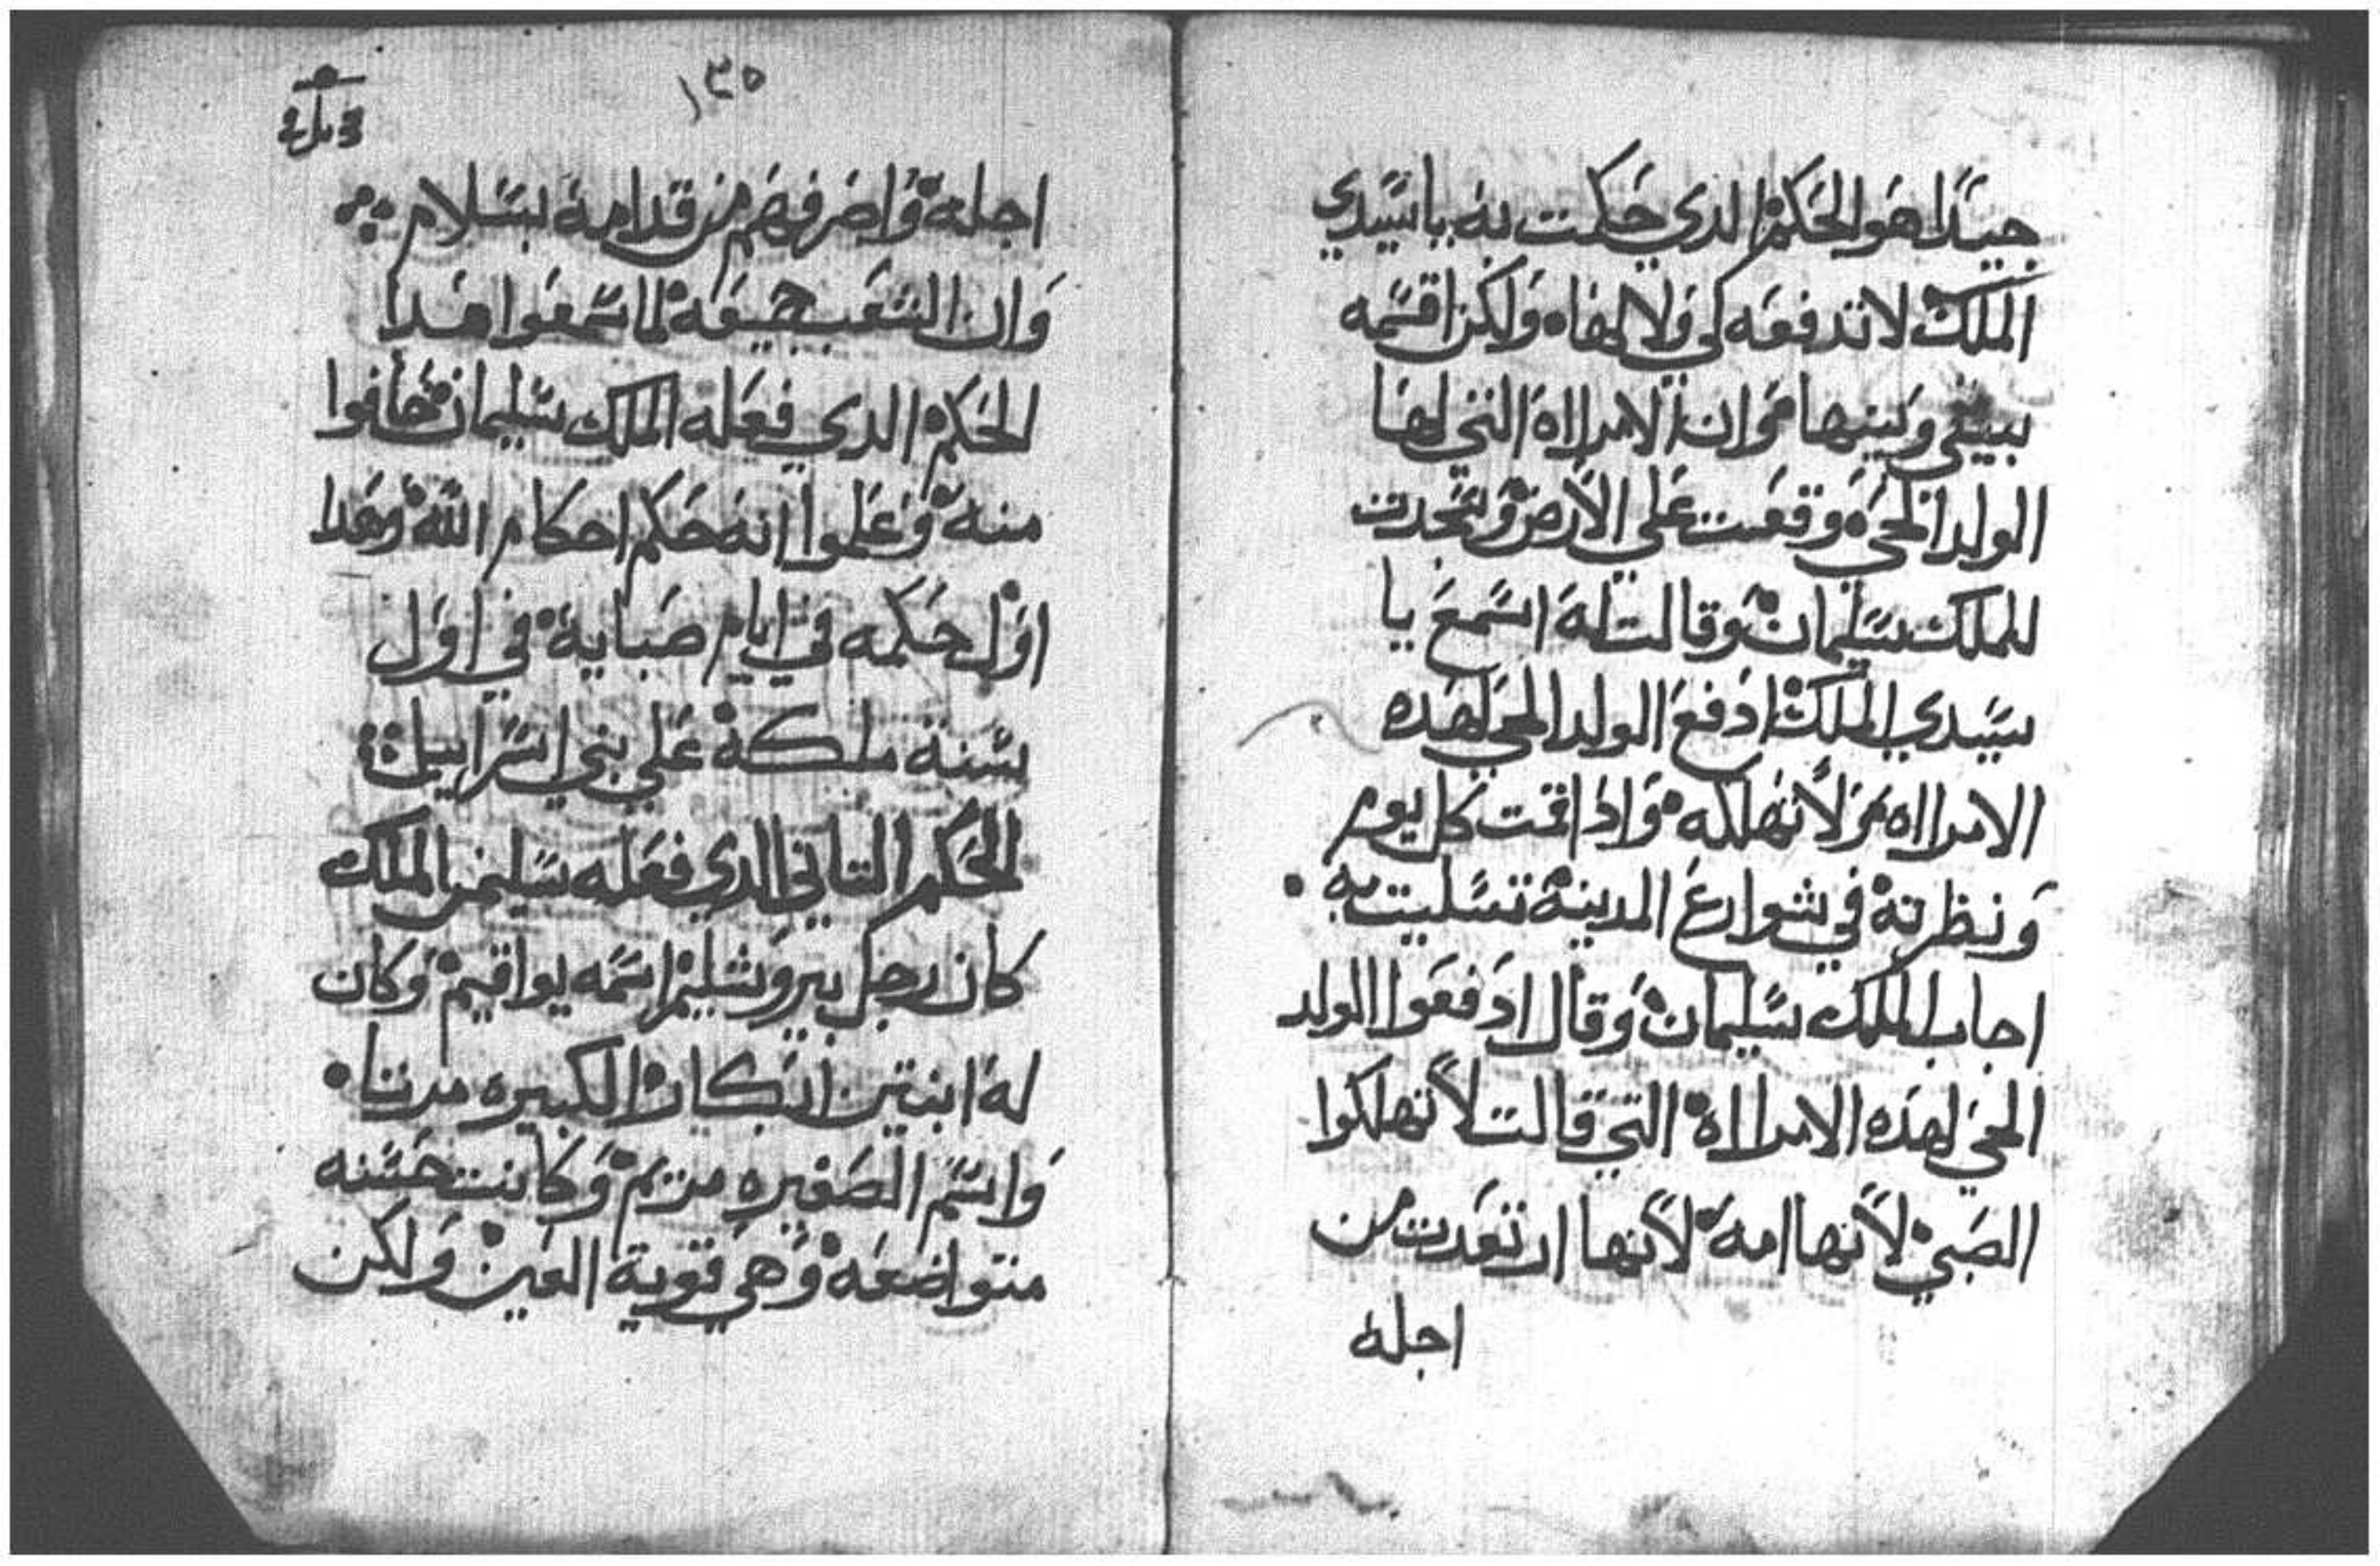 جيدا هو الحكم الدي حكمت به يا سيدي
الملك لا تدفعه لي ولا لهاه ولكن اقسمه
بيني وبينها وان الامرااه التي لها
الولد الحي وقعت على الارض وسجدت
للملك سليمان وقالت له اسمع يا
سيدي الملك ادفع الولد الحي لهده
الامرااه لا تهلكه وادا قمت كل يوم
ونظرته في شوارع المدينة تسليت به
اجاب الملك سليمان وقال ادفعوا الولد
الحي لهده الامرااه التي قالت لا تهلكوا
الصبي لانها امه لانها ارتعدت من
اجله
١٣٥
اجله واصرفهم من قدامه بسلام
وان الشعب جميعه لما سمعوا هدا
الحكم الدي فعله الملك سليمان خافوا
منه وعلموا انه حكم احكام الله وهدا
اول حكمه في ايام صبايه في اول
سنة ملكه على بني اسراييل
الحكم التاني الدي فعله سليمن الملك
كان رجل بيروشليم اسمه يواقيم وكان
له ابنتين ابكار الكبيره مرتا
واسم الصغيره مريم وكانت حسنه
متواضعه وهي قوية العين ولكن